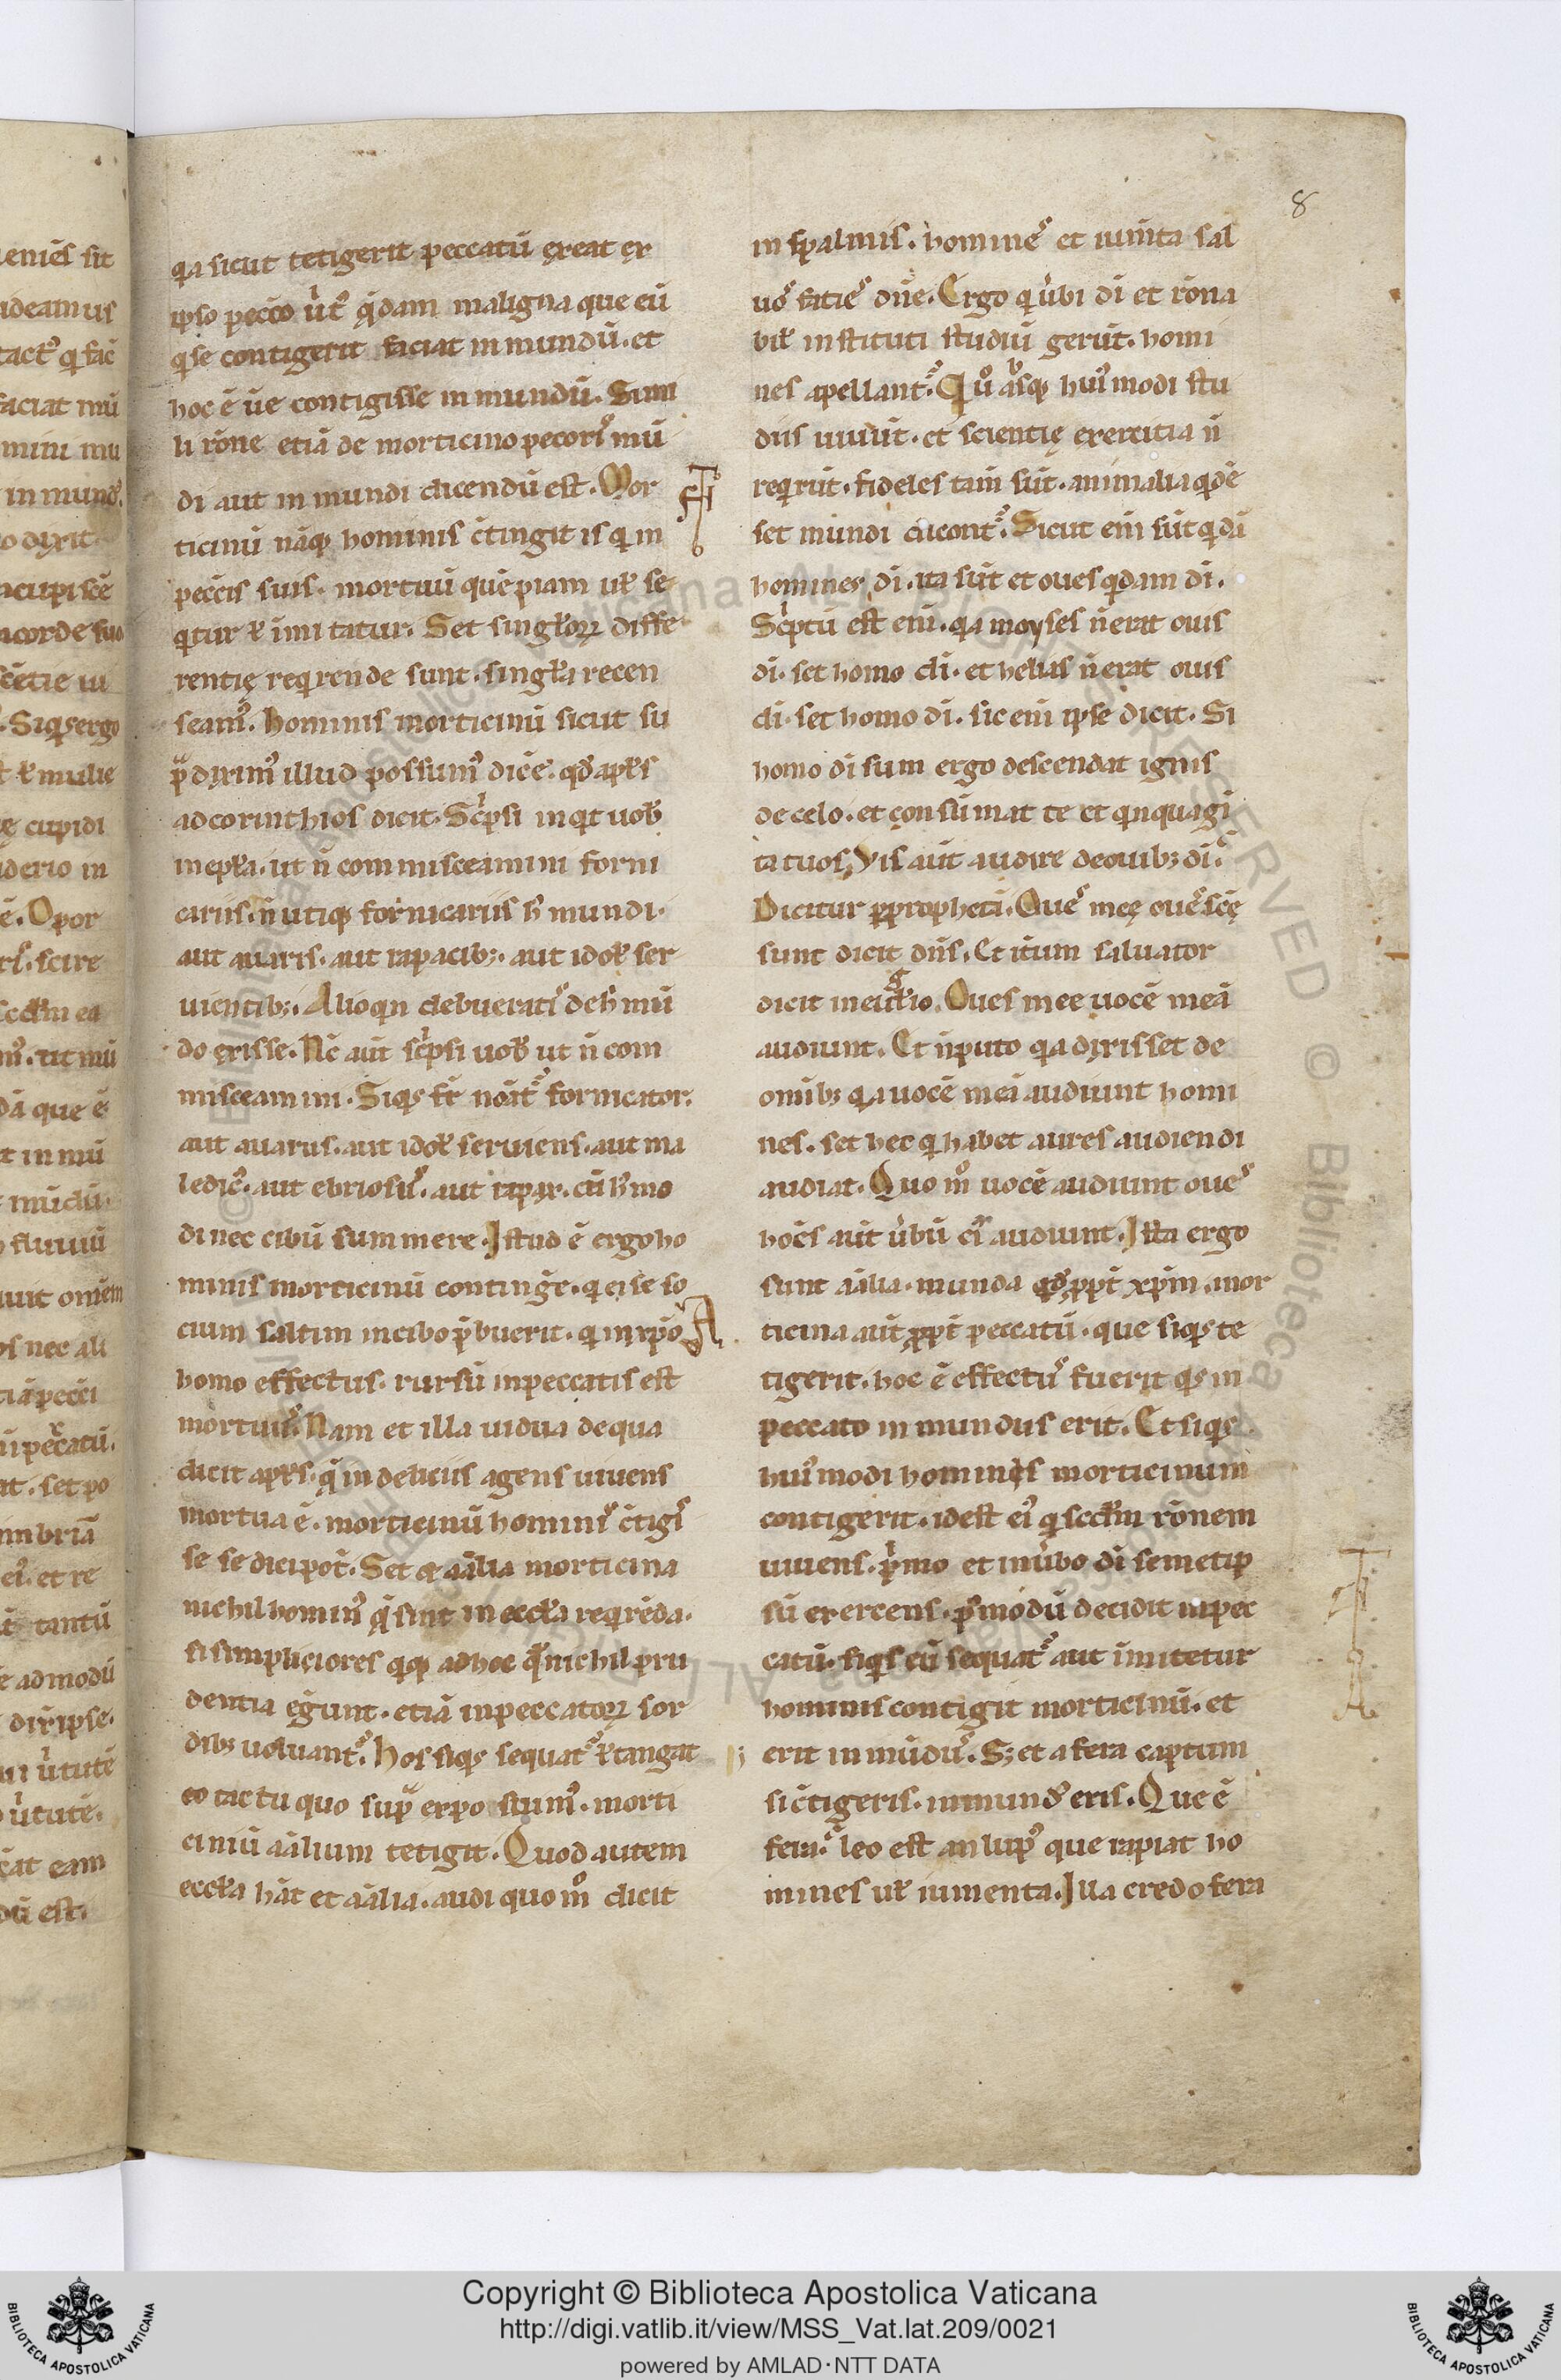 8
qa sicut tetigerit peccatū ęxeat ex
ipso pecc̄o ut̉ q̄dam maligna que eū
q̇ se contigerit faciat inmundū. et
hoc ē ūe contigisse inmundū. Simi
li rōne etiā de morticino pecoris mū
di aut inmundi dicendū est. Mor
ticinū nāq; hominis c̄tingit is q̇ in
pecc̄is suis. mortuū quēpiam uł se
q̇tur ł imitatur. Set singłoꝝ diffe
rentię req̇rende sunt. singła recen
seam᾽. hominis morticinū sicut su
p̄ dixim᾽ illud possum᾽ dic̄e. qđ apłs
ad corinthios dicit. Sc̓psi inq̇t uob̄
in epła. ut n̄ commisceamini forni
cariis. n̄ utiq; fornicariis h᾽ mundi.
aut auaris. aut rapacib;. aut idoł ser
uientib;. Alioq̇n debueratis de h᾽ mū
do exisse. Nc̄ aūt sc̓psi uob̄ ut n̄ com
misceamini. Siq̇s fr̄ noāt᾽ fornicator.
aut auarus. aut idoł seruiens. aut ma
ledic᾽. aut ebriosus. aut rapax. cū h᾽mo
di nec cibū summere. Istud ē ergo ho
minis morticinū continḡe. q̇ ei se so
cium saltim in cibo p̄buerit. q̇ in xp̄o
homo effectus. rursū in peccatis est
mortuus. Nam et illa uidua de qua
dicit apłs. q̄ in deliciis agens uiuens
mortua ē. morticinū hominis c̄tigis
se se dici pot̄. Set et aālia morticina
nichilhomin᾽ q̄ sint in eccła req̇rēda.
si simpliciores q̇q; adhoc q̄ nichil pru
dentia eḡunt. etiā in peccatoꝝ sor
dib; uoluant᾽. Hos siq̇s sequat᾽ ł tangat
eo tactu quo sup̄ exposuim᾽. morti
ciniū aālium tetigit. Quod autem
eccła hāt et aālia. audi quom̊ dicit
in spalmis. homines et iumta sal
uos facies dn̄e. Ergo q̇ ūbi dī et rōna
bił instituti studiū gerūt. homi
nes apellant᾽. Qui̊ absq; hui᾽modi stu
diis uiuūt. et scientię exercitia n̄
req̇rūt. fideles tam̄ sūt. animalia q̇dē
set mundi dicont᾽. Sicut eni sūt q̇dā
homines dī. ita sūt et oues q̇dam dī.
Sc̓ptū est enī. qa moyses n̄ erat ouis
dī. set homo dī. et helias n̄ erat ouis
dī. set homo dī. sic enī ipse dicit. Si
homo dī sum ergo descendat ignis
de celo. et consūmat te et q̇nquagi
ta tuos. Vis aūt audire de ouib; dī.
Dicitur p̱ prophetā. Oues meę oues scę̄
sunt dicit dn̄s. Et it̄um saluator
dicit in euḡlio. Oues mee uocē meā
audiunt. Et n̄ puto qa dixisset de
om̄ib; qa uocē meā audiunt homi
nes. set hec q̇ habet aures audiendi
audiat. Quo m̊ uocē audiunt oues
hoēs aūt ūbū ei᾽ audiunt. Ista ergo
sunt aālia. munda qđ ꝓpt̄ xp̄m. mor
ticina aūt ꝓpt̄ peccatū. que siq̇s te
tigerit. hoc ē effectus fuerit q̇s in
peccato inmundus erit. Et siq̇s
hui᾽modi hominis morticinum
contigerit. id est ei᾽ q̇ scđm rōnem
uiuens. p̓mo et in ūbo dī semetip
sū exercens. p᾽modū decidit in pec
catū. siq̇s eū sequat᾽ aut īmitetur
hominis contigit morticinū. et
erit inmūdus. S; et a fera captum
si c̄tigeris. inmund᾽ eris. Que ē
fera. leo est an lup᾽ que rapiat ho
mines uł iumenta. Illa credo fera
Copyright © Biblioteca Apostolica Vaticana
http://digi.vatlib.it/view/MSS_Vat.lat.209/0021
powered by AMLAD·NTT DATA